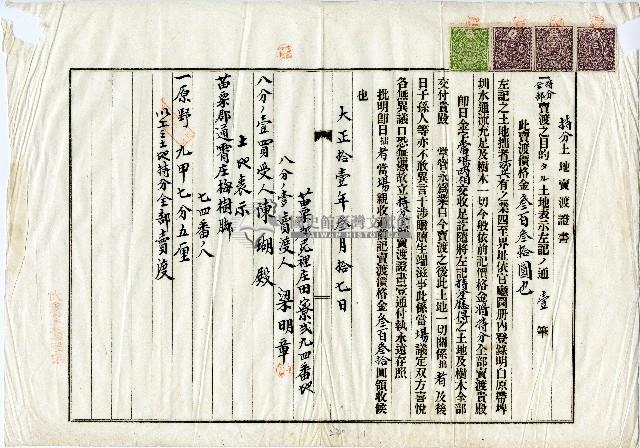 持分土地賣渡證書
一持分全部賣渡之目的タル土地表示左記ノ通 壹筆
此賣渡價格金叁百叁拾圓也
左記之土地拙者所有之業四至界址依官廳圖册內登錄明白原帶埤
圳水通流充足及樹木一切今歟依前記價格金將持分全部賣渡貴殿
即日金字當場兩相交收足訖隨將左記持分應得之土地及樹木全部
交付貴殿 掌管永為業自今賣渡之後此土地一切關係拙者及後
日子孫人等亦不敢異言干涉贖生端滋事此係當場議定双方喜悅
各無異議口恐無憑故立持分賣渡證書壹通付執永遠存照
批明即日拙者當場親收過前記賣渡價格金叁百叁拾圓領收候
也
大正拾壹年叁月拾七日
苗栗郡苑裡庄田寮弍九四番地
八分ノ壹賣渡人 梁明章
八分ノ壹買受人 陳瑚殿
土地表示
苗栗郡通霄庄梅樹脚
七四番ノ八
一原野 九甲七分五厘
以上ミ土地持分全部賣渡
國史館臺灣文獻館
TAIWAN HISTORICA